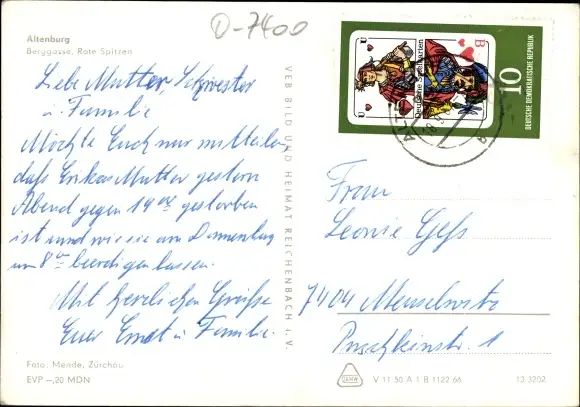 O-7400
Altenburg
Berggasse, Rote Spitzen
Liebe Mutter Schwester
u Familie
Möchte Euch nur mitteilen
daß Erikas Mutter gestern
Abend gegen 19 00 gestorben
ist und wir sie am Donnerstag
um 8 00 beerdigen lassen.
Mit herzlichen Grüße
Euer Ernst u Familie.
Foto: Mende, Zürchau
EVP –,20 MDN
VEB BILD UND HEIMAT REICHENBACH i. V.
Deutsche Spielkarten
10
DEUTSCHE DEMOKRATISCHE REPUBLIK
Frau
Leonie Geß
7404 Meuselwitz
Puschkinstr. 1
V 11 50 A 1 B 1122 66
13 3202